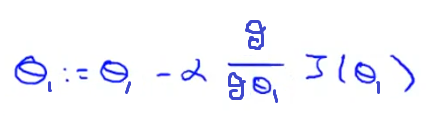 θ₁ := θ₁ - α ∂/∂θ₁ J(θ₁)